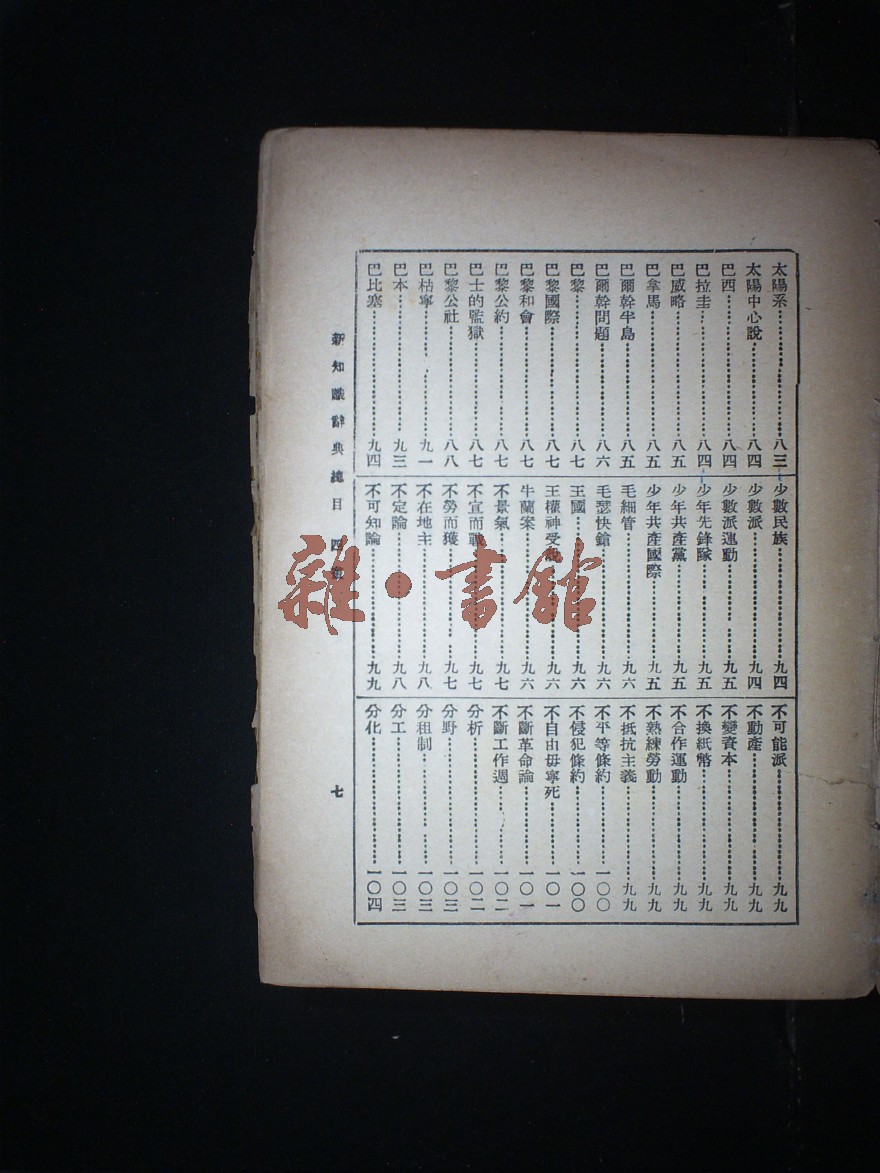 太陽系……八三
太陽中心說……八四
巴西……八四
巴拉圭……八四
巴威略……八五
巴拿馬……八五
巴爾幹半島……八五
巴爾幹問題……八六
巴黎……八七
巴黎國際……八七
巴黎和會……八七
巴黎公約……八七
巴士的監獄……八七
巴黎公社……八八
巴枯寧……九一
巴本……九三
巴比塞……九四
少數民族……九四
少數派……九四
少數派運動……九五
少年先鋒隊……九五
少年共產黨……九五
少年共產國際……九五
毛細管……九六
毛瑟快鎗……九六
王國……九六
王權神受說……九六
牛蘭案……九六
不景氣……九七
不宣而戰……九七
不勞而獲……九七
不在地主……九八
不定論……九八
不可知論……九九
不可能派……九九
不動產……九九
不變資本……九九
不換紙幣……九九
不合作運動……九九
不熟練勞動……九九
不抵抗主義……九九
不平等條約……一〇〇
不侵犯條約……一〇〇
不自由毋寧死……一〇一
不斷革命論……一〇一
不斷工作週……一〇二
分析……一〇二
分野……一〇三
分租制……一〇三
分工……一〇三
分化……一〇四
新知識辭典總目 四畫
七
雜·書館